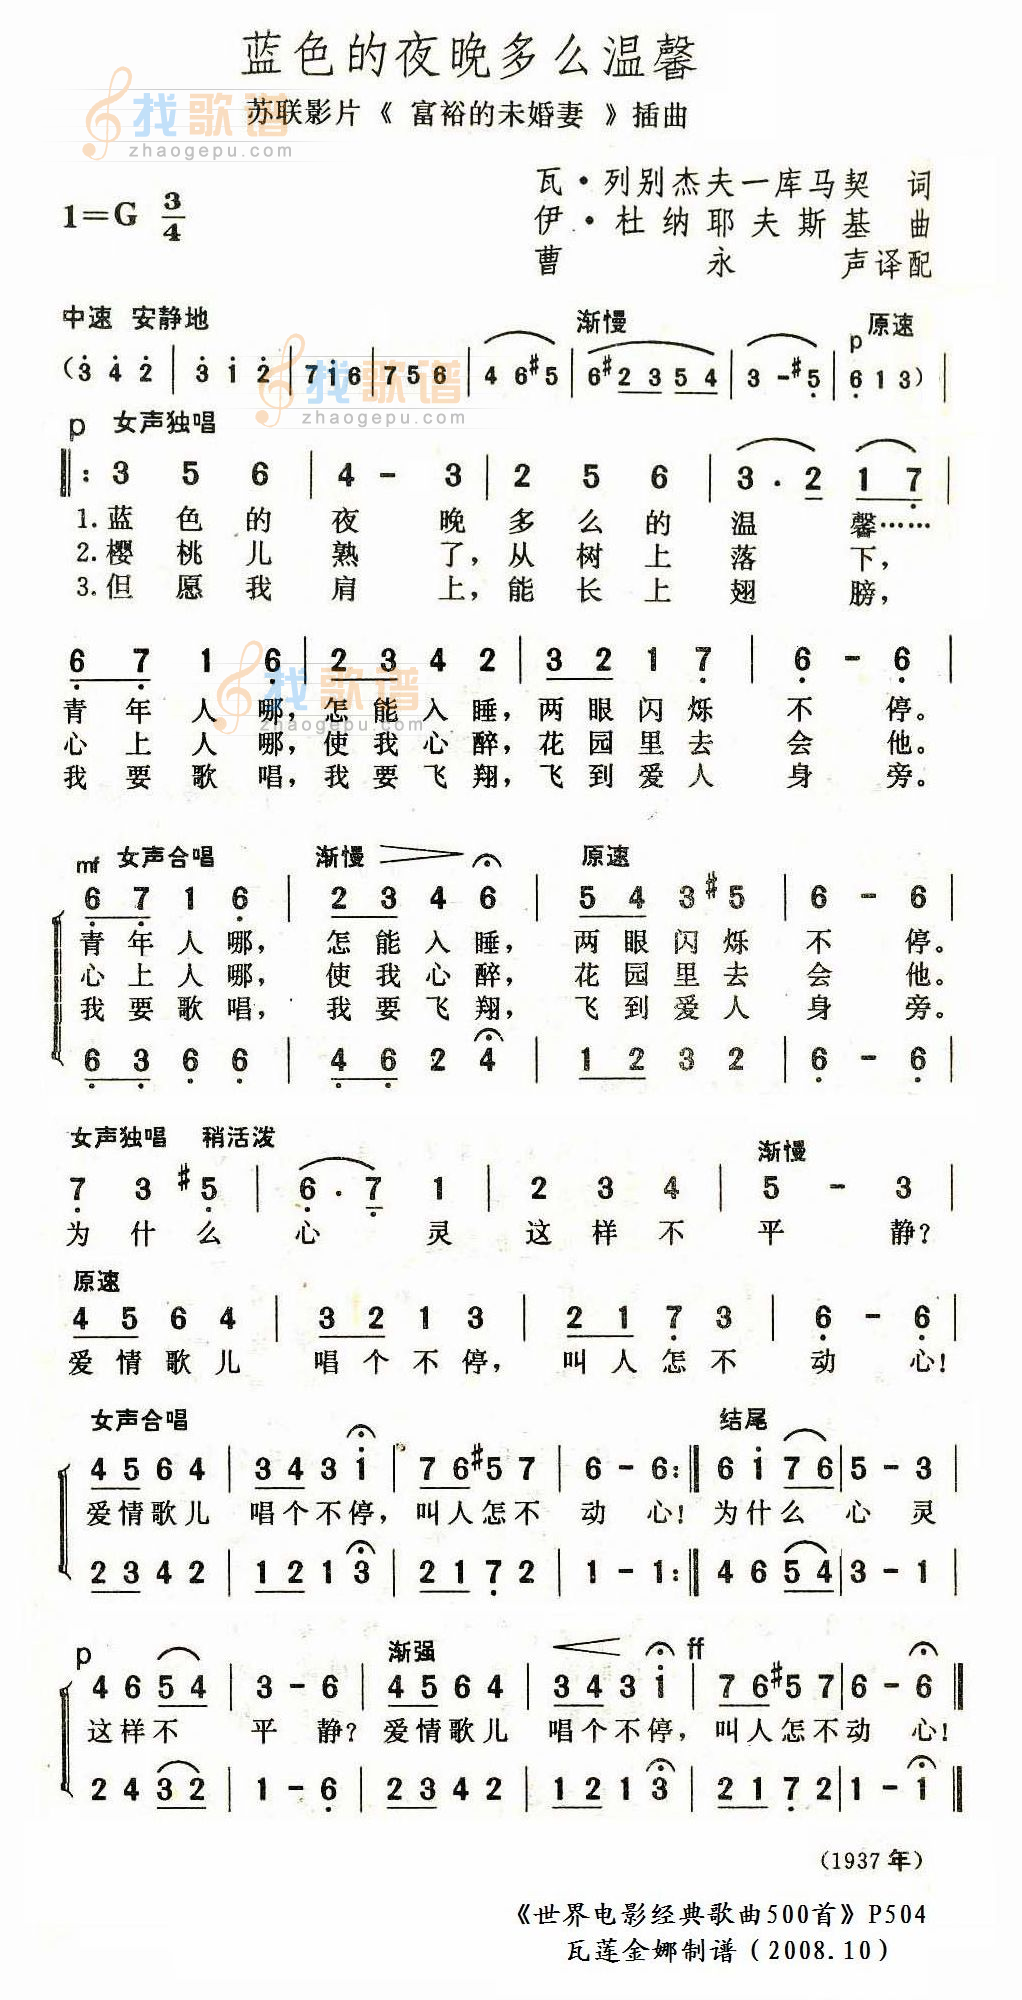 蓝色的夜晚多么温馨
苏联影片《 富裕的未婚妻 》插曲
找歌谱
zhaogepu.com
瓦·列别杰夫—库马契 词
1=G 3/4
伊·杜纳耶夫斯基 曲
曹永声译配
中速 安静地 渐慢 原速
p
(3 4 2 | 3 1 2 | 7 1 6 | 7 5 6 | 4 6 #5 | 6 #2 3 5 4 | 3 - #5 | 6 1 3)|
找歌谱
zhaogepu.com
p 女声独唱
‖: 3 5 6 | 4 - 3 | 2 5 6 | 3 . 2 | 1 7 |
1.蓝色的夜晚多么的温馨……
2.樱桃儿熟了,从树上落下,
3.但愿我肩上,能长上翅膀,
6 7 1 6 | 2 3 4 2 | 3 2 1 7 | 6 - 6 |
找歌谱
zhaogepu.com
青年人哪,怎能入睡,两眼闪烁不停。
心上人哪,使我心醉,花园里去会他。
我要歌唱,我要飞翔,飞到爱人身旁。
mf 女声合唱 渐慢 原速
6 7 1 6 | 2 3 4 6 | 5 4 3 #5 | 6 - 6 |
青年人哪,怎能入睡,两眼闪烁不停。
心上人哪,使我心醉,花园里去会他。
我要歌唱,我要飞翔,飞到爱人身旁。
6 3 6 6 | 4 6 2 4 | 1 2 3 2 | 6 - 6 |
女声独唱 稍活泼 渐慢
7 3 #5 | 6 . 7 1 | 2 3 4 | 5 - 3 |
为什么心灵这样不平静?
原速
4 5 6 4 | 3 2 1 3 | 2 1 7 3 | 6 - 6 |
爱情歌儿唱个不停,叫人怎不动心!
女声合唱 结尾
4 5 6 4 | 3 4 3 1 | 7 6 #5 7 | 6 - 6 :‖ 6 1 7 6 | 5 - 3 |
爱情歌儿唱个不停,叫人怎不动心!为什么心灵
2 3 4 2 | 1 2 1 3 | 2 1 7 2 | 1 - 1 :‖ 4 6 5 4 | 3 - 1 |
p 渐强 ff
4 6 5 4 | 3 - 6 | 4 5 6 4 | 3 4 3 1 | 7 6 #5 7 | 6 - 6 ‖
这样不平静?爱情歌儿唱个不停,叫人怎不动心!
2 4 3 2 | 1 - 6 | 2 3 4 2 | 1 2 1 3 | 2 1 7 2 | 1 - 1 ‖
(1937 年)
《世界电影经典歌曲500首》P504
瓦莲金娜制谱(2008.10)